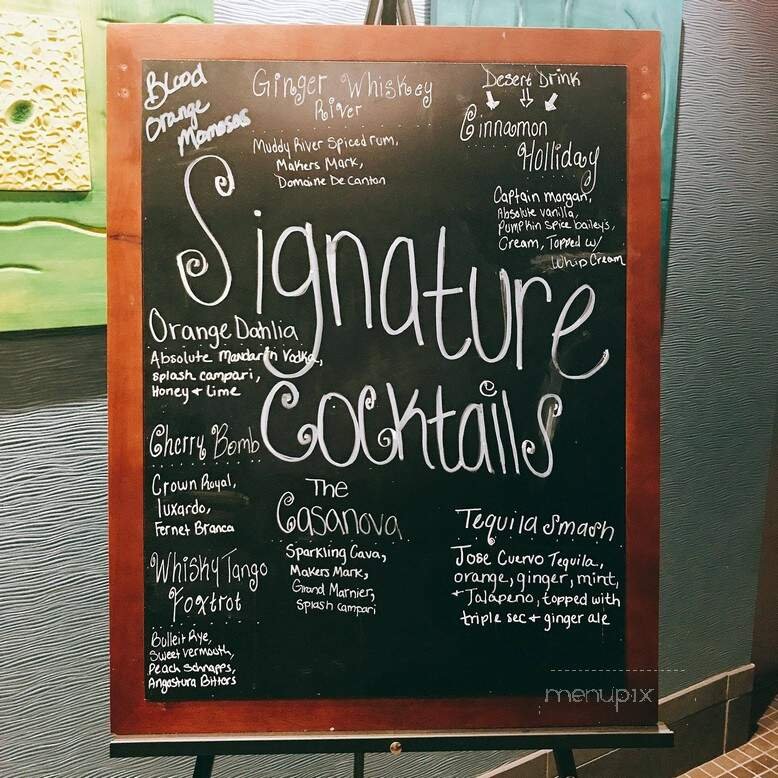 Blood
Orange
Mamosas
Ginger Whiskey
River
Muddy River Spiced rum,
Makers Mark,
Domaine De Canton
Desert Drink
Cinnamon
Holliday
Captain morgan,
Absolute vanilla,
Pumpkin spice bailey's,
Cream, Topped w/
Whip Cream
Signature
Cocktails
Orange Dahlia
Absolute Mandarin Vodka,
splash campari,
Honey + Lime
Cherry Bomb
Crown Royal,
luxardo,
Fernet Branca
Whisky Tango
Foxtrot
Bulleit Rye,
Sweet vermouth,
Peach Schnapps,
Angostura Bitters
The
Casanova
Sparkling Cava,
Makers Mark,
Grand Marnier,
Splash campari
Tequila Smash
Jose Cuervo Tequila,
orange, ginger, mint,
+ Jalapeno, topped with
triple sec + ginger ale
menupix